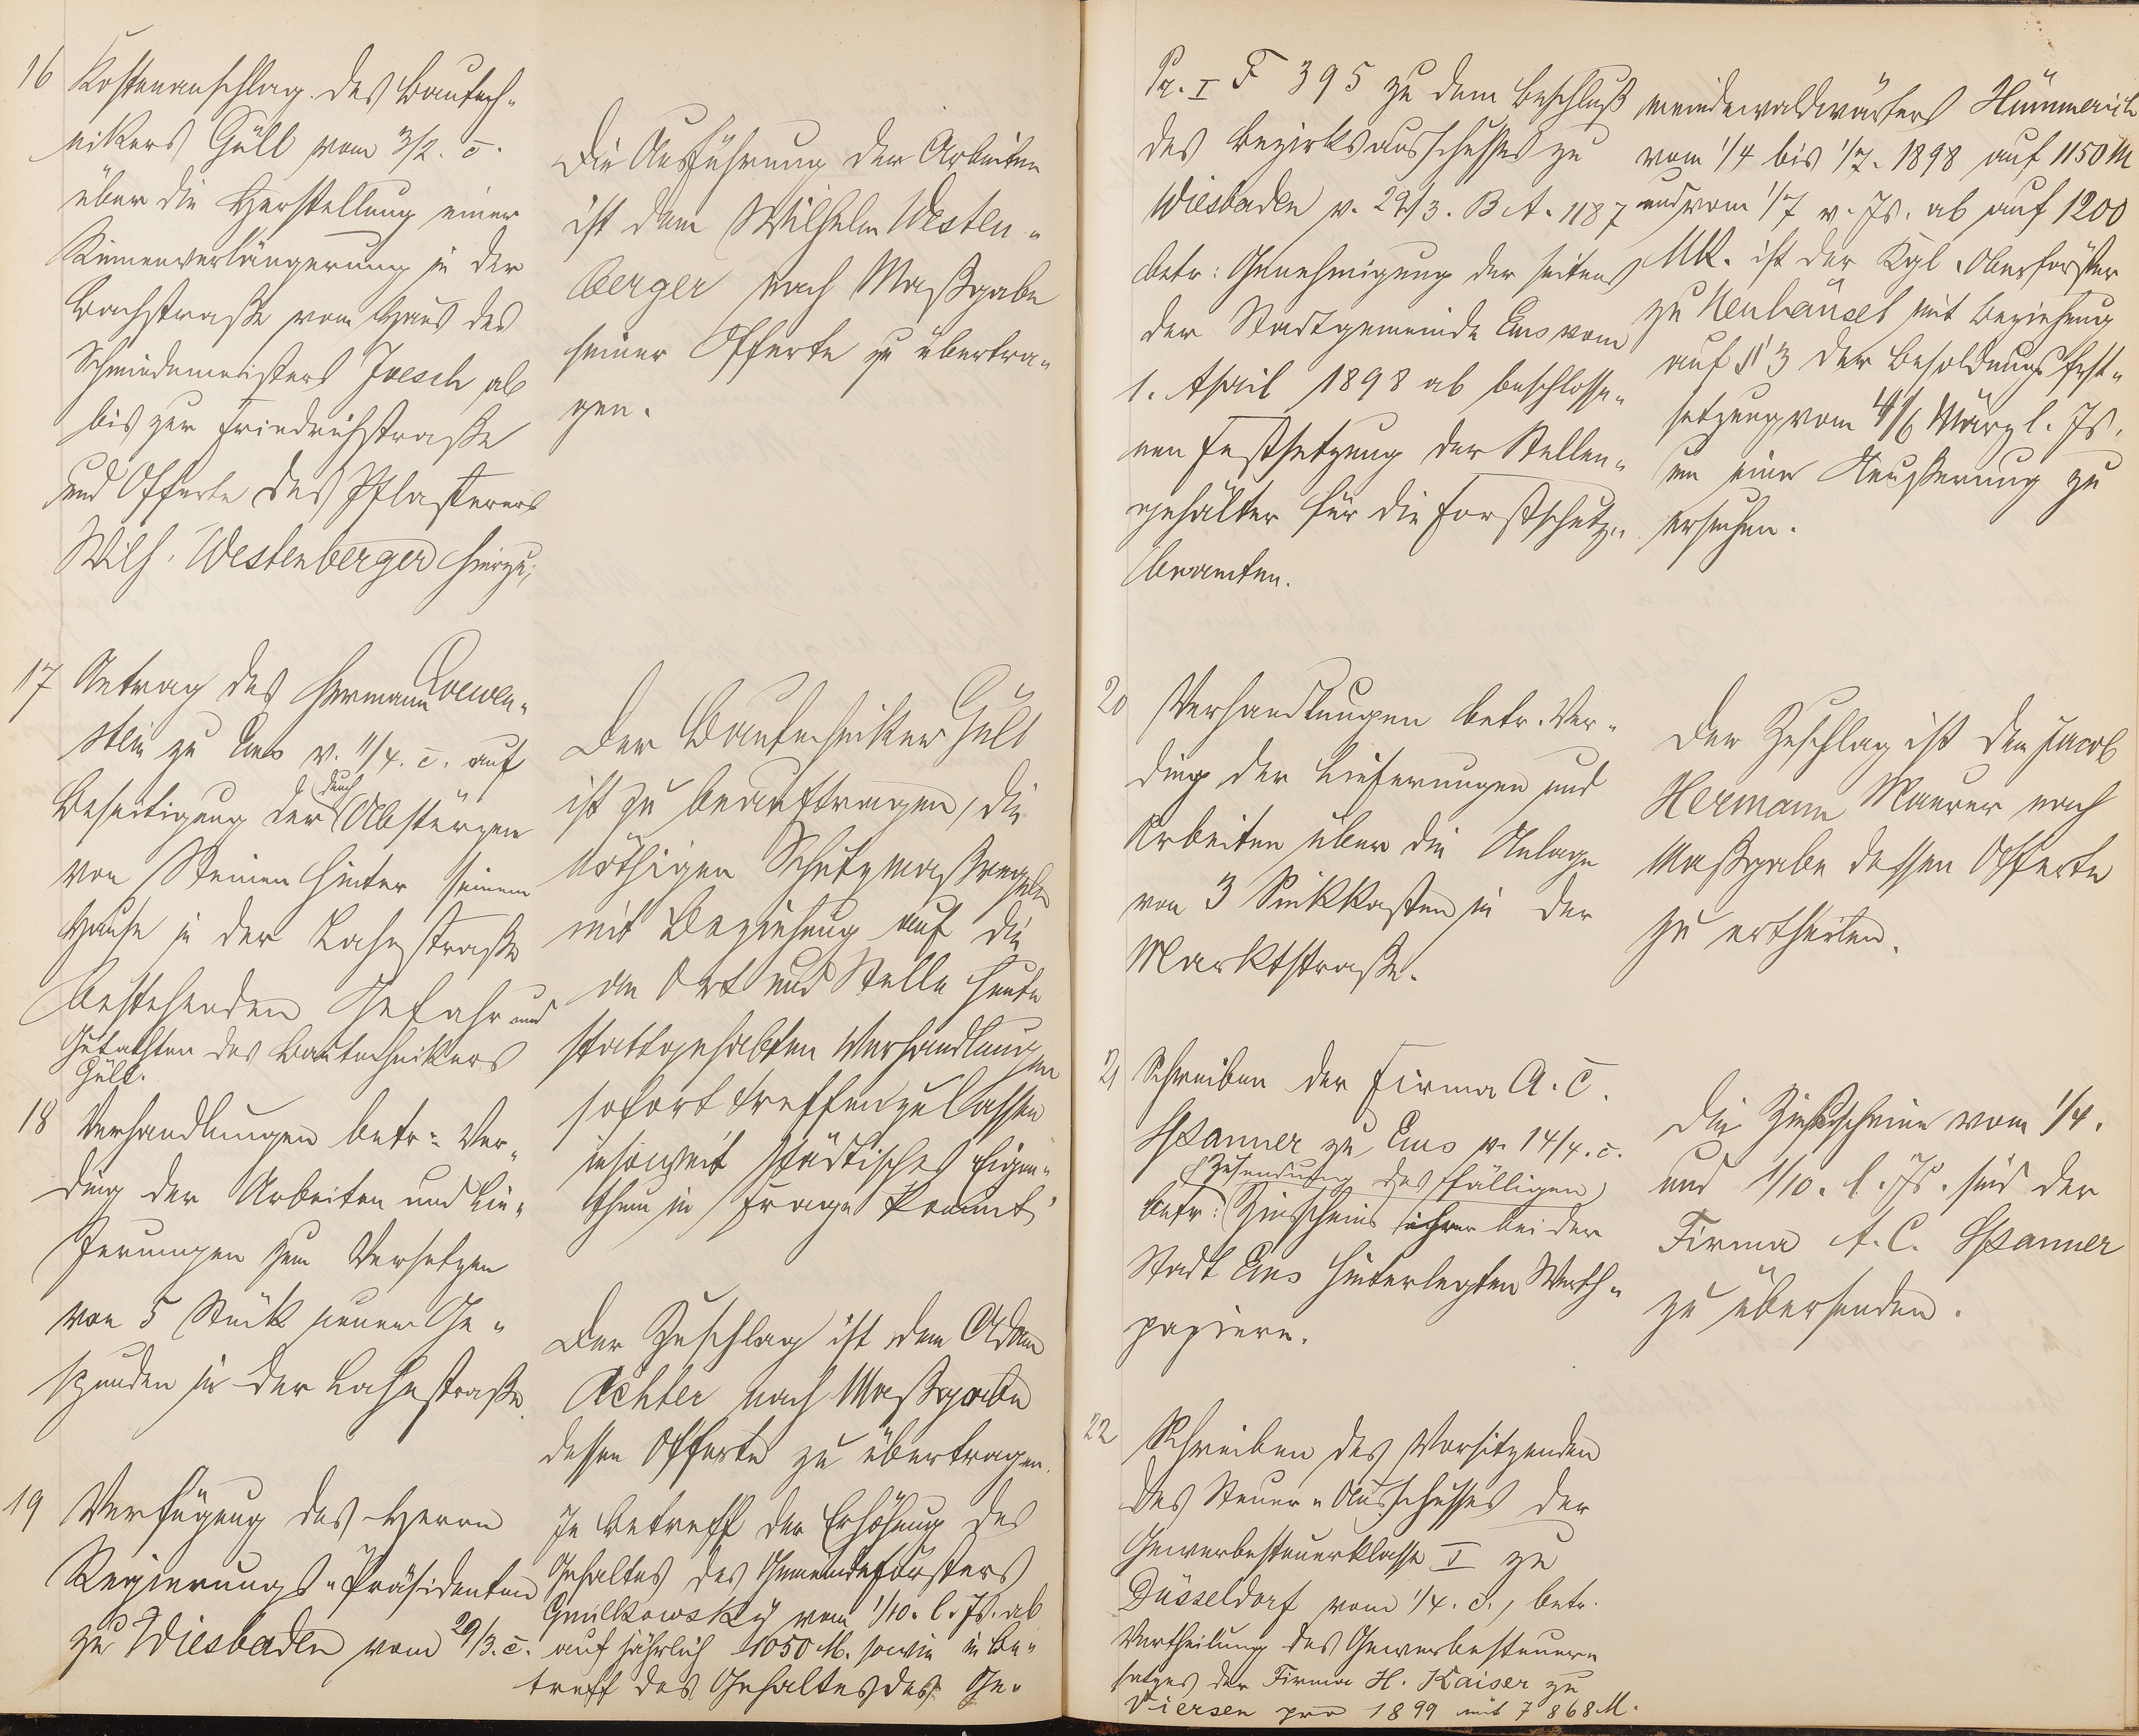 16 Kostenanschlag des Bautech-
nikers Güll vom 3/2. c.
über die Herstellung einer
Rinnenverlängerung in der
Bachstraße vom Haus des
Schmiedemeisters Joesch ab
bis zur Friedrichstraße
und Offerte des Pflasterers
Wilh. Westenberger hierzu;
Die Ausführung der Arbeiten
ist dem Wilhelm Westen-
berger nach Maßgabe
seiner Offerte zu übertra-
gen.
17 Antrag des Hermann Loewen-
stein zu Ems v. 11/4. c. auf
Beseitigung der durch Abstürzen
von Steinen hinter seinem
Hause in der Lahnstraße
bestehenden Gefahr und
Gutachten des Bautechnikers
Güll.
Der Bautechniker Güll
ist zu beauftragen, die
nöthigen Schutzmaßregeln
mit Beziehung auf die
an Ort und Stelle heute
stattgehabten Verhandlungen
sofort treffen zu lassen
insoweit städtisches Eigen-
thum in Frage kommt.
18 Verhandlungen betr: Ver-
ding der Arbeiten und Lie-
ferungen zum Versetzen
von 5 Stück neuen Ge-
spunden in der Lahnstraße.
Der Zuschlag ist dem Adam
Achter nach Maßgabe
dessen Offerte zu übertragen.
19 Verfügung des Herrn
Regierungs-Präsidenten
zu Wiesbaden vom 29/3. c.
Pr. I F 395 zu dem Beschluß
des Bezirksausschusses zu
Wiesbaden v. 22/3. B. A. 1187
betr: Genehmigung der seitens
der Stadtgemeinde Ems vom
1. April 1898 ab beschlosse-
nen Festsetzung der Stellen-
gehälter für die Forstschutz-
beamten.
In Betreff der Erhöhung des
Gehaltes des Gemeindeförsters
Gmilkowsky vom 1/10. l. Js. ab
auf jährlich 1050 M. sowie in Be-
treff des Gehaltes des Ge-
meindewaldwärters Hümmerich
vom 1/4 bis 1/7. 1898 auf 1150 M
und vom 1/7 v. Js. ab auf 1200
Mk. ist der Kgl. Oberförster
zu Neuhäusel mit Beziehung
auf § 3 der Besoldungsfest-
setzung vom 4/6 März l. Js.
um eine Aeußerung zu
ersuchen.
20 Verhandlungen betr. Ver-
ding der Lieferungen und
Arbeiten über die Anlage
von 3 Sinkkasten in der
Marktstraße.
Der Zuschlag ist dem Jacob
Hermann Maurer nach
Maßgabe dessen Offerte
zu ertheilen.
21 Schreiben der Firma A. C.
Spanner zu Ems v. 14/4. c.
betr: Zusendung des fälligen
Zinsscheins ihrer bei der
Stadt Ems hinterlegten Werth-
papiere.
Die Zinsscheine vom 1/4.
und 1/10. l. Js. sind der
Firma A. C. Spanner
zu übersenden.
22 Schreiben des Vorsitzenden
des Steuer-Ausschusses der
Gewerbesteuerklasse I zu
Düsseldorf vom 1/4. c., betr.
Vertheilung des Gewerbesteuer-
satzes der Firma H. Kaiser zu
Viersen pro 1899 mit 7868 M.